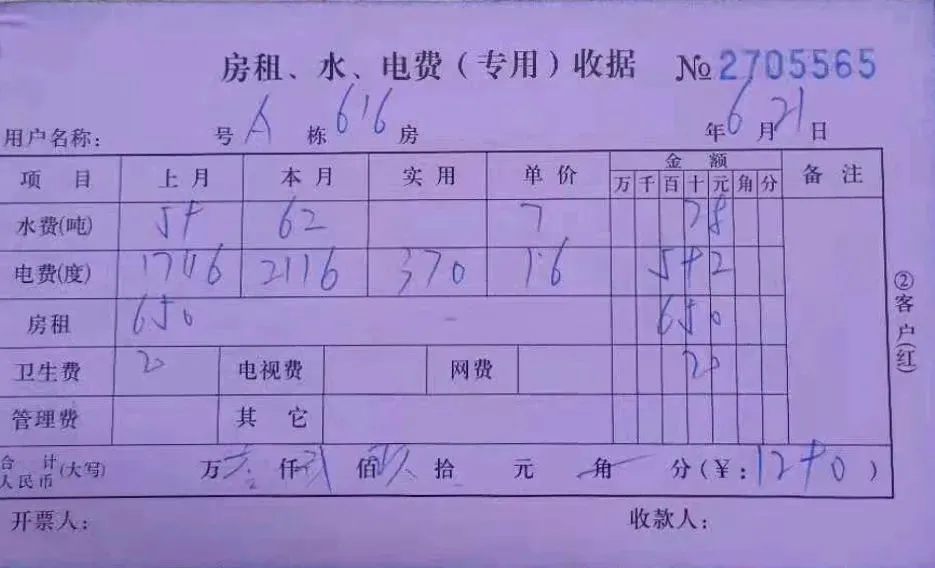 房租、水、电费(专用)收据 №2705565
用户名称: 号 A 栋 616 房 年 6 月 21 日
项目 上月 本月 实用 单价 金额 备注
万 千 百 十 元 角 分
水费(吨) 58 62 7 28
电费(度) 1746 2116 370 1.6 592
房租 650 650
卫生费 20 电视费 网费 20
管理费 其它
合计人民币(大写) 万 壹 仟 贰 佰 玖 拾 元 角 分(¥:1290)
开票人: 收款人:
②客户(红)